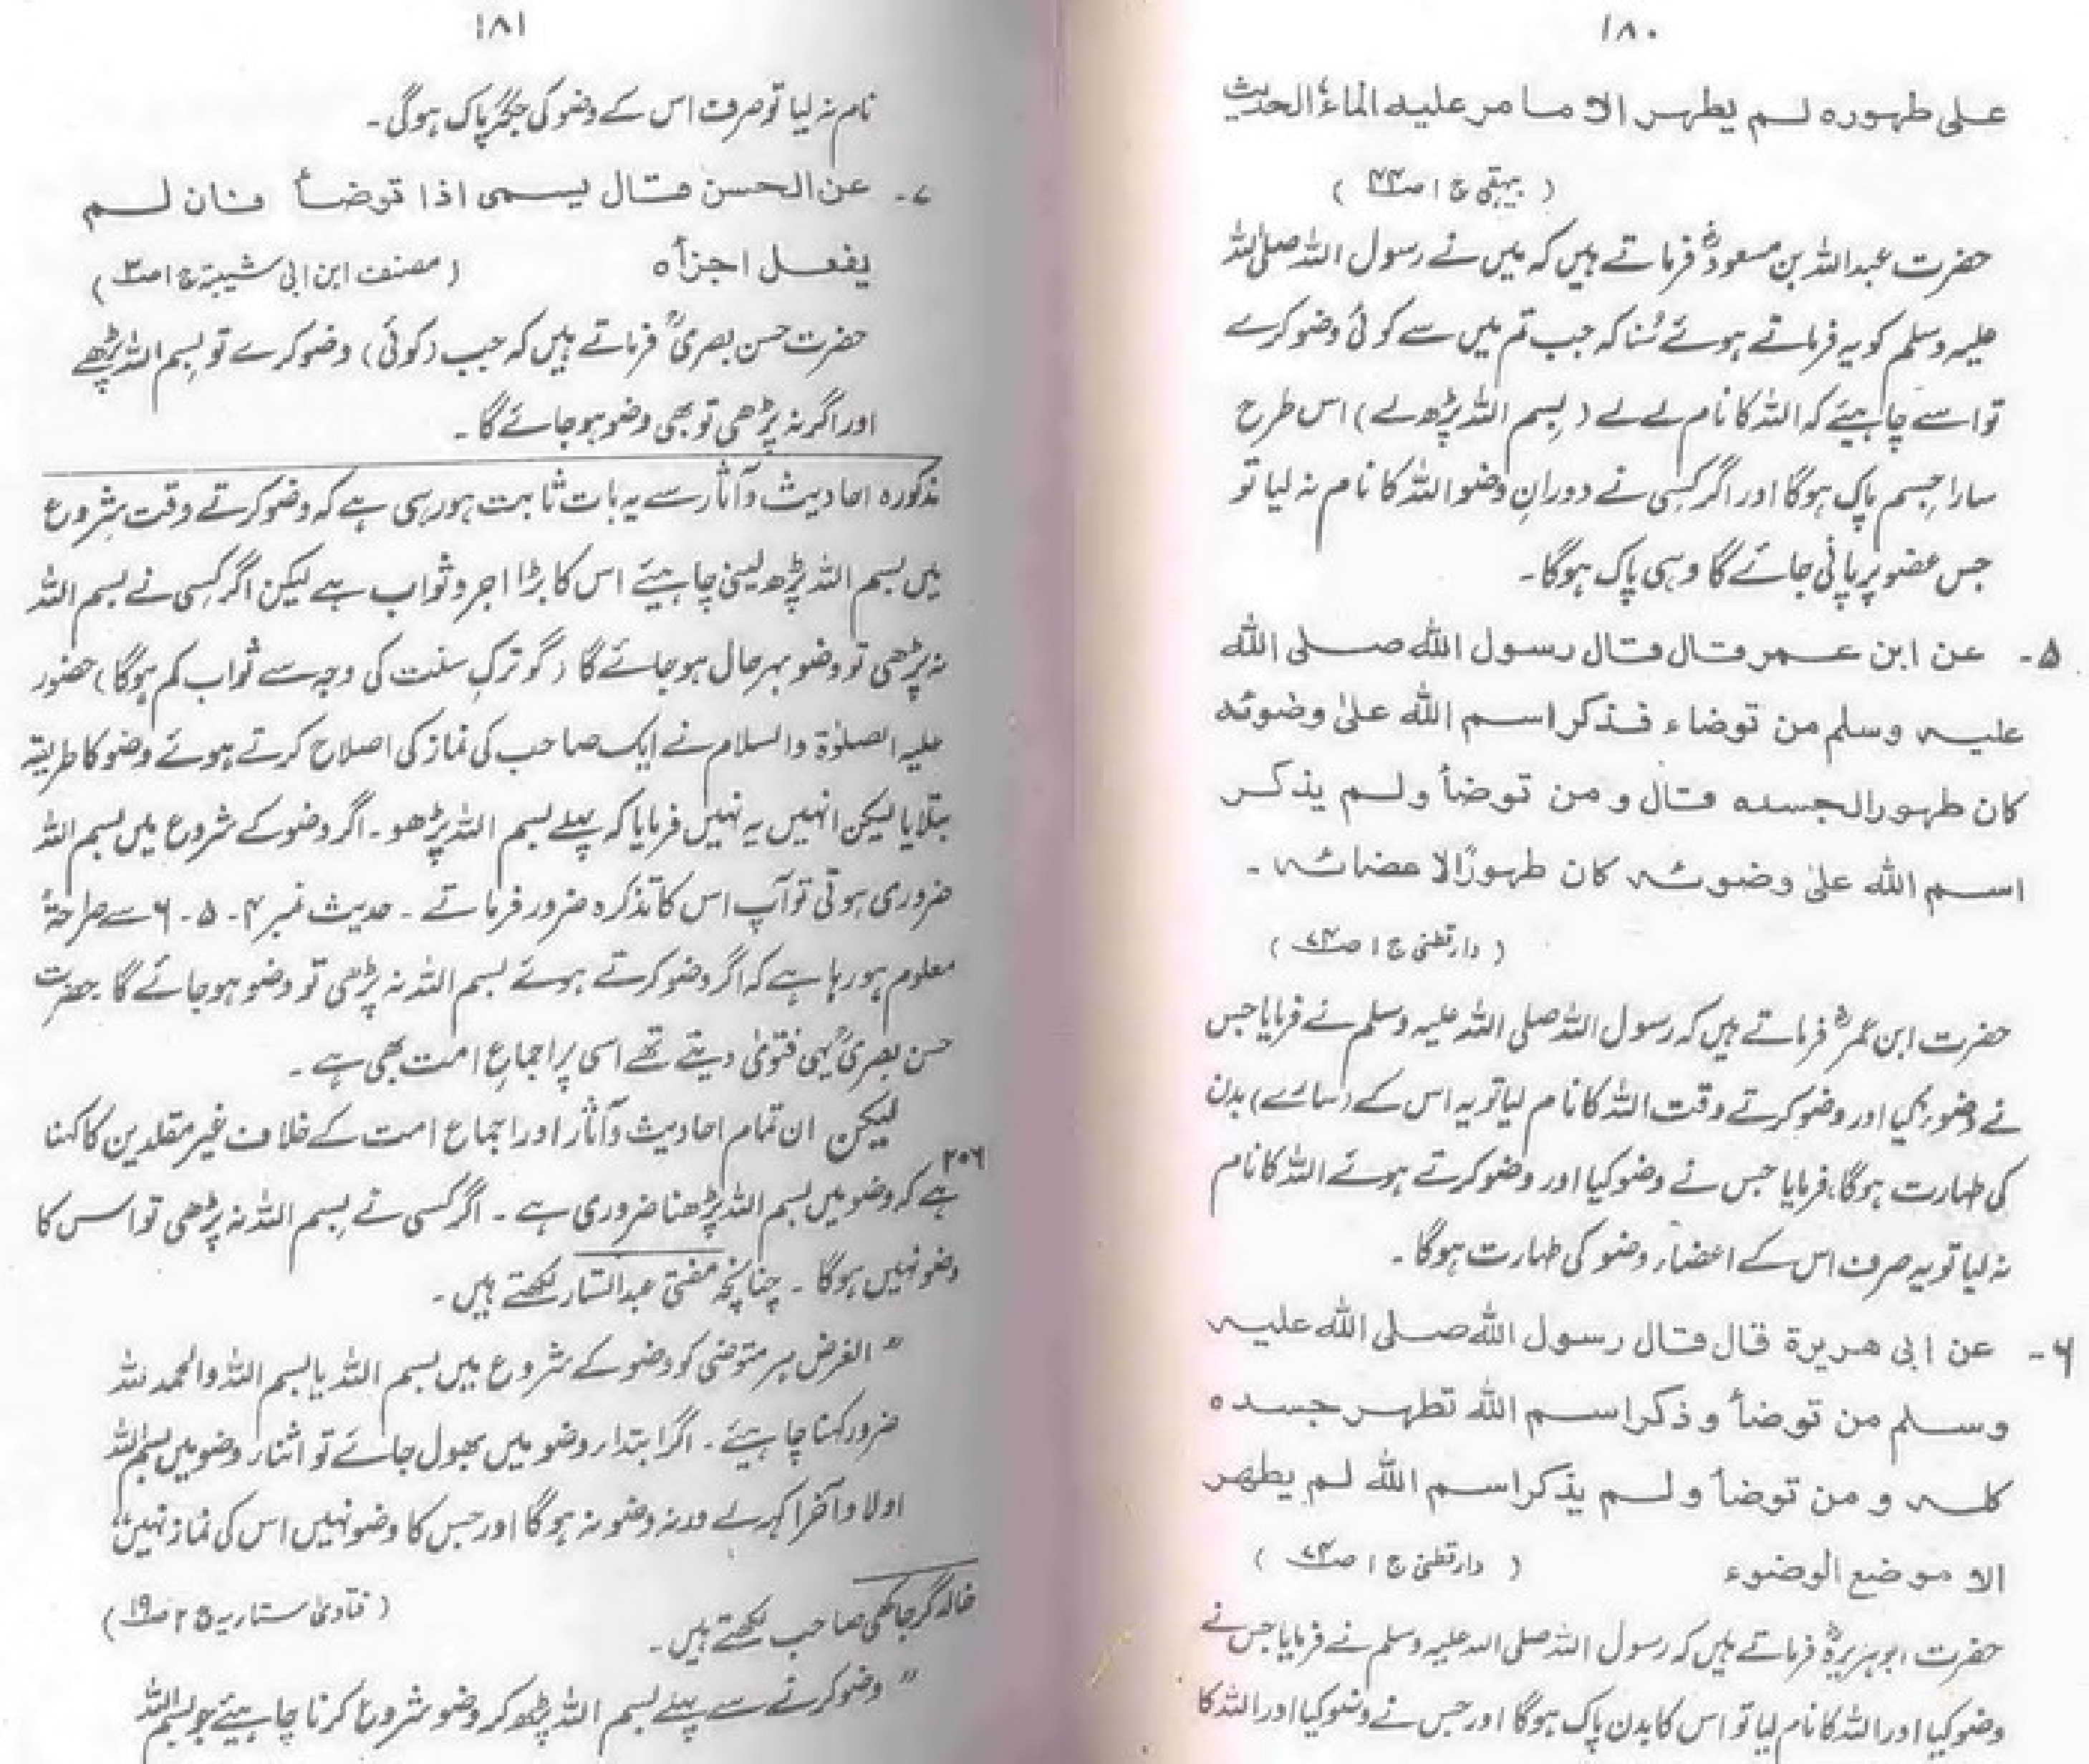 ۱۸۰
على طهوره لم يطهر الا ما مر عليه الماء الحديث
( بیہقی ج ۱ ص۴۴ )
حضرت عبداللہ بن مسعودؓ فرماتے ہیں کہ میں نے رسول اللہ صلی اللہ
علیہ وسلم کو یہ فرماتے ہوئے سُنا کہ جب تم میں سے کوئی وضو کرے
تو اسے چاہیئے کہ اللہ کا نام لے لے ( بسم اللہ پڑھ لے ) اس طرح
سارا جسم پاک ہوگا اور اگر کسی نے دورانِ وضو اللہ کا نام نہ لیا تو
جس عضو پر پانی جائے گا وہی پاک ہوگا۔
۵۔ عن ابن عمر قال قال رسول الله صلى الله
عليه وسلم من توضاء فذكر اسم الله على وضوئه
كان طهورا لجسده قال و من توضأ ولم يذكر
اسم الله على وضوئه كان طهورًا لا عضائه ۔
( دارقطنی ج ۱ ص۷۴ )
حضرت ابن عمرؓ فرماتے ہیں کہ رسول اللہ صلی اللہ علیہ وسلم نے فرمایا جس
نے وضو کیا اور وضو کرتے وقت اللہ کا نام لیا تو یہ اس کے (سارے) بدن
کی طہارت ہوگا، فرمایا جس نے وضو کیا اور وضو کرتے ہوئے اللہ کا نام
نہ لیا تو یہ صرف اس کے اعضاء وضو کی طہارت ہوگا ۔
۶۔ عن ابى هريرة قال قال رسول الله صلى الله عليه
وسلم من توضأ و ذكر اسم الله تطهر جسده
كله و من توضأ و لم يذكر اسم الله لم يطهر
الا موضع الوضوء ( دارقطنی ج ۱ ص۷۴ )
حضرت ابوہریرہؓ فرماتے ہیں کہ رسول اللہ صلی اللہ علیہ وسلم نے فرمایا جس نے
وضو کیا اور اللہ کا نام لیا تو اس کا بدن پاک ہوگا اور جس نے وضو کیا اور اللہ کا
۱۸۱
نام نہ لیا تو صرف اس کے وضو کی جگہ پاک ہوگی ۔
۷۔ عن الحسن قال يسمى اذا توضأ فان لم
يفعل اجزأه ( مصنف ابن ابی شیبۃ ج ۱ ص۳ )
حضرت حسن بصریؒ فرماتے ہیں کہ جب (کوئی) وضو کرے تو بسم اللہ پڑھے
اور اگر نہ پڑھی تو بھی وضو ہو جائے گا ۔
مذکورہ احادیث و آثار سے یہ بات ثابت ہو رہی ہے کہ وضو کرتے وقت شروع
میں بسم اللہ پڑھ لینی چاہیئے اس کا بڑا اجر و ثواب ہے لیکن اگر کسی نے بسم اللہ
نہ پڑھی تو وضو بہر حال ہو جائے گا ( گو ترکِ سنت کی وجہ سے ثواب کم ہوگا) حضور
علیہ الصلوٰۃ والسلام نے ایک صاحب کی نماز کی اصلاح کرتے ہوئے وضو کا طریقہ
بتلایا لیکن انہیں یہ نہیں فرمایا کہ پہلے بسم اللہ پڑھو ۔ اگر وضو کے شروع میں بسم اللہ
ضروری ہوتی تو آپ اس کا تذکرہ ضرور فرماتے ۔ حدیث نمبر ۴ - ۵ - ۶ سے صراحۃً
معلوم ہو رہا ہے کہ اگر وضو کرتے ہوئے بسم اللہ نہ پڑھی تو وضو ہو جائے گا ۔ حضرت
حسن بصریؒ یہی فتویٰ دیتے تھے اسی پر اجماعِ امت بھی ہے ۔
لیکن ان تمام احادیث و آثار اور اجماع امت کے خلاف غیر مقلدین کا کہنا
۲۰۶
ہے کہ وضو میں بسم اللہ پڑھنا ضروری ہے ۔ اگر کسی نے بسم اللہ نہ پڑھی تو اس کا
وضو نہیں ہوگا ۔ چنانچہ مفتی عبدالستار لکھتے ہیں ۔
" الغرض ہر متوضی کو وضو کے شروع میں بسم اللہ یا بسم اللہ والحمد للہ
ضرور کہنا چاہیئے ۔ اگر ابتداء وضو میں بھول جائے تو اثناء وضو میں بسم اللہ
اولا و آخرا کہہ لے ورنہ وضو نہ ہوگا اور جس کا وضو نہیں اس کی نماز نہیں"
( فتاویٰ ستاریہ ج ۲ ص۱۹ )
خالد گرجاکھی صاحب لکھتے ہیں ۔
" وضو کرنے سے پہلے بسم اللہ پڑھ کر وضو شروع کرنا چاہیئے جو بسم اللہ